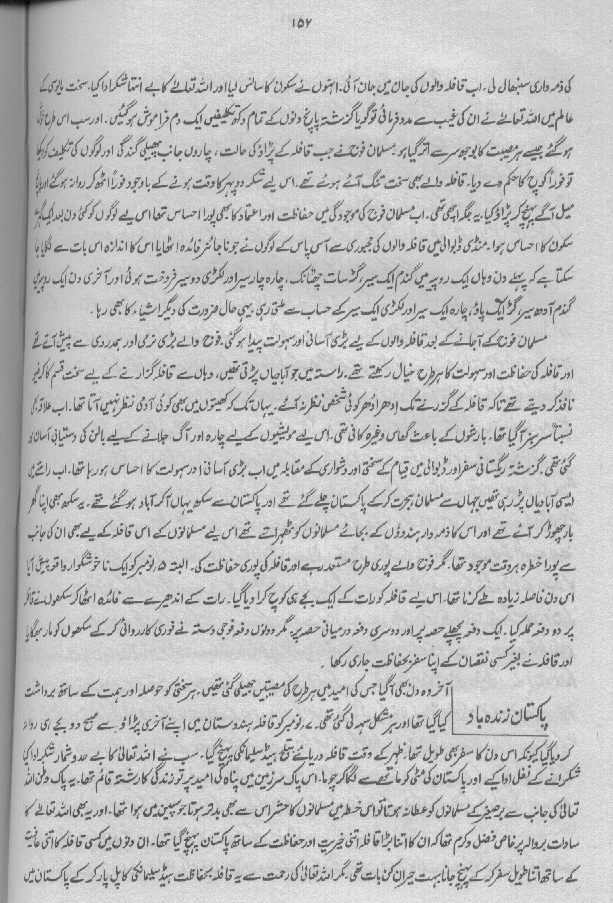 ۱۵۶
کی ذمہ داری سنبھال لی۔ اب قافلہ والوں کی جان میں جان آئی۔ انہوں نے سکون کا سانس لیا اور اللہ تعالےٰ کا بے انتہا شکر ادا کیا۔ سخت مایوسی کے
عالم میں اللہ تعالےٰ نے ان کی غیب سے مدد فرمائی تو گویا گزشتہ پانچ دنوں کے تمام دکھ تکلیفیں ایک دم فراموش ہو گئیں۔ اور سب اس طرح
ہو گئے جیسے ہر مصیبت کا بوجھ سر سے اتر گیا ہو۔ مسلمان فوج نے جب قافلہ کے پڑاؤ کی حالت، چاروں جانب پھیلی گندگی اور لوگوں کی تکلیف کو دیکھا
تو فوراً کوچ کا حکم دے دیا۔ قافلہ والے بھی سخت تنگ آئے ہوئے تھے۔ اس لیے شکر دوپہر کا وقت ہونے کے باوجود فوراً اٹھ کر روانہ ہو گئے اور
میل آگے پہنچ کر پڑاؤ کیا۔ یہ جگہ اچھی تھی۔ اب مسلمان فوج کی موجودگی میں حفاظت اور اعتماد کا بھی پورا احساس تھا اس لیے لوگوں کو کئی دن بعد ایک گونہ
سکون کا احساس ہوا۔ منڈی ڈبوالی میں قافلہ والوں کی مجبوری سے آس پاس کے لوگوں نے جو ناجائز فائدہ اٹھایا اس کا اندازہ اس بات سے لگایا جا
سکتا ہے کہ پہلے دن وہاں ایک روپیہ میں گندم ایک سیر، گڑ سات چھٹانک، چارہ چار سیر اور لکڑی دو سیر فروخت ہوئی اور آخری دن ایک روپیہ
گندم آدھ سیر، گڑ ایک پاؤ، چارہ ایک سیر اور لکڑی ایک سیر کے حساب سے ملتی رہی۔ یہی حال ضرورت کی دیگر اشیاء کا بھی رہا۔
مسلمان فوج کے آ جانے کے بعد قافلہ والوں کے لیے بڑی آسانی اور سہولت پیدا ہو گئی۔ فوج والے بڑی نرمی اور ہمدردی سے پیش آتے تھے
اور قافلہ کی حفاظت اور سہولت کا ہر طرح خیال رکھتے تھے۔ راستہ میں جو آبادیاں پڑتی تھیں، وہاں سے قافلہ گزارنے کے لیے سخت قسم کا کرفیو
نافذ کر دیتے تھے تاکہ قافلہ کے گزرنے تک اِدھر اُدھر کوئی شخص نظر نہ آئے۔ یہاں تک کہ کھیتوں میں بھی کوئی آدمی نظر نہیں آتا تھا۔ اب علاقہ بھی
نسبتاً سرسبز آ گیا تھا۔ بارشوں کے باعث گھاس وغیرہ کافی تھی۔ اس لیے مویشیوں کے لیے چارہ اور آگ جلانے کے لیے بالن کی دستیابی آسان ہو
گئی تھی۔ گزشتہ ریگستانی سفر اور ڈبوالی میں قیام کے سختی اور دشواری کے مقابلہ میں اب بڑی آسانی اور سہولت کا احساس ہو رہا تھا۔ اب راستے میں
ایسی آبادیاں پڑ رہی تھیں جہاں سے مسلمان ہجرت کر کے پاکستان چلے گئے تھے اور پاکستان سے سکھ یہاں آ کر آباد ہو گئے تھے۔ یہ سکھ بھی اپنا گھر
بار چھوڑ کر آئے تھے اور اس کا ذمہ دار ہندوؤں کے بجائے مسلمانوں کو ٹھہراتے تھے اس لیے مسلمانوں کے اس قافلہ کے لیے بھی ان کی جانب
سے پورا خطرہ ہر وقت موجود تھا۔ مگر فوج والے پوری طرح مستعد رہے اور قافلہ کی پوری حفاظت کی۔ البتہ ۵ نومبر کو ایک ناخوشگوار واقعہ پیش آیا
اس دن فاصلہ زیادہ طے کرنا تھا۔ اس لیے قافلہ کو رات کے ایک بجے ہی کوچ کرا دیا گیا۔ رات کے اندھیرے سے فائدہ اٹھا کر سکھوں نے قافلہ
پر دو دفعہ حملہ کیا۔ ایک دفعہ پچھلے حصہ پر اور دوسری دفعہ درمیانی حصہ پر۔ مگر دونوں دفعہ فوجی دستہ نے فوری کارروائی کر کے سکھوں کو مار بھگایا
اور قافلہ نے بغیر کسی نقصان کے اپنا سفر بحفاظت جاری رکھا۔
پاکستان زندہ باد
آخر وہ دن بھی آ گیا جس کی امید میں ہر طرح کی مصیبتیں جھیلی گئی تھیں۔ ہر سختی کو حوصلہ اور ہمت کے ساتھ برداشت
کیا گیا تھا اور ہر مشکل سہی گئی تھی۔ ۷ نومبر کو قافلہ ہندوستان میں اپنے آخری پڑاؤ سے صبح دو بجے ہی روانہ
کر دیا گیا کیونکہ اس دن کا سفر بھی طویل تھا۔ ظہر کے وقت قافلہ دریائے ستلج ہیڈ سلیمانکی پہنچ گیا۔ سب نے اللہ تعالیٰ کا بے حد و شمار شکر ادا کیا
شکرانے کے نفل ادا کیے اور پاکستان کی مٹی کو ماتھے سے لگا کر چوما۔ اس پاک سرزمین میں پناہ کی امید پر تو زندگی کا رشتہ قائم تھا۔ یہ پاک وطن اللہ
تعالیٰ کی جانب سے برصغیر کے مسلمانوں کو عطا نہ ہوتا تو اس خطہ میں مسلمانوں کا حشر اس سے بھی بدتر ہوتا جو سپین میں ہوا تھا۔ اور یہ بھی اللہ تعالےٰ کا
سادات بروالہ پر خاص فضل و کرم تھا کہ ان کا اتنا بڑا قافلہ اتنی خیریت اور حفاظت کے ساتھ پاکستان پہنچ گیا تھا۔ ان دنوں میں کسی قافلہ کا اتنی عافیت
کے ساتھ اتنا طویل سفر کر کے پہنچ جانا بہت حیران کن بات تھی۔ مگر اللہ تعالیٰ کی رحمت سے یہ قافلہ بحفاظت ہیڈ سلیمانکی کا پل پار کر کے پاکستان میں